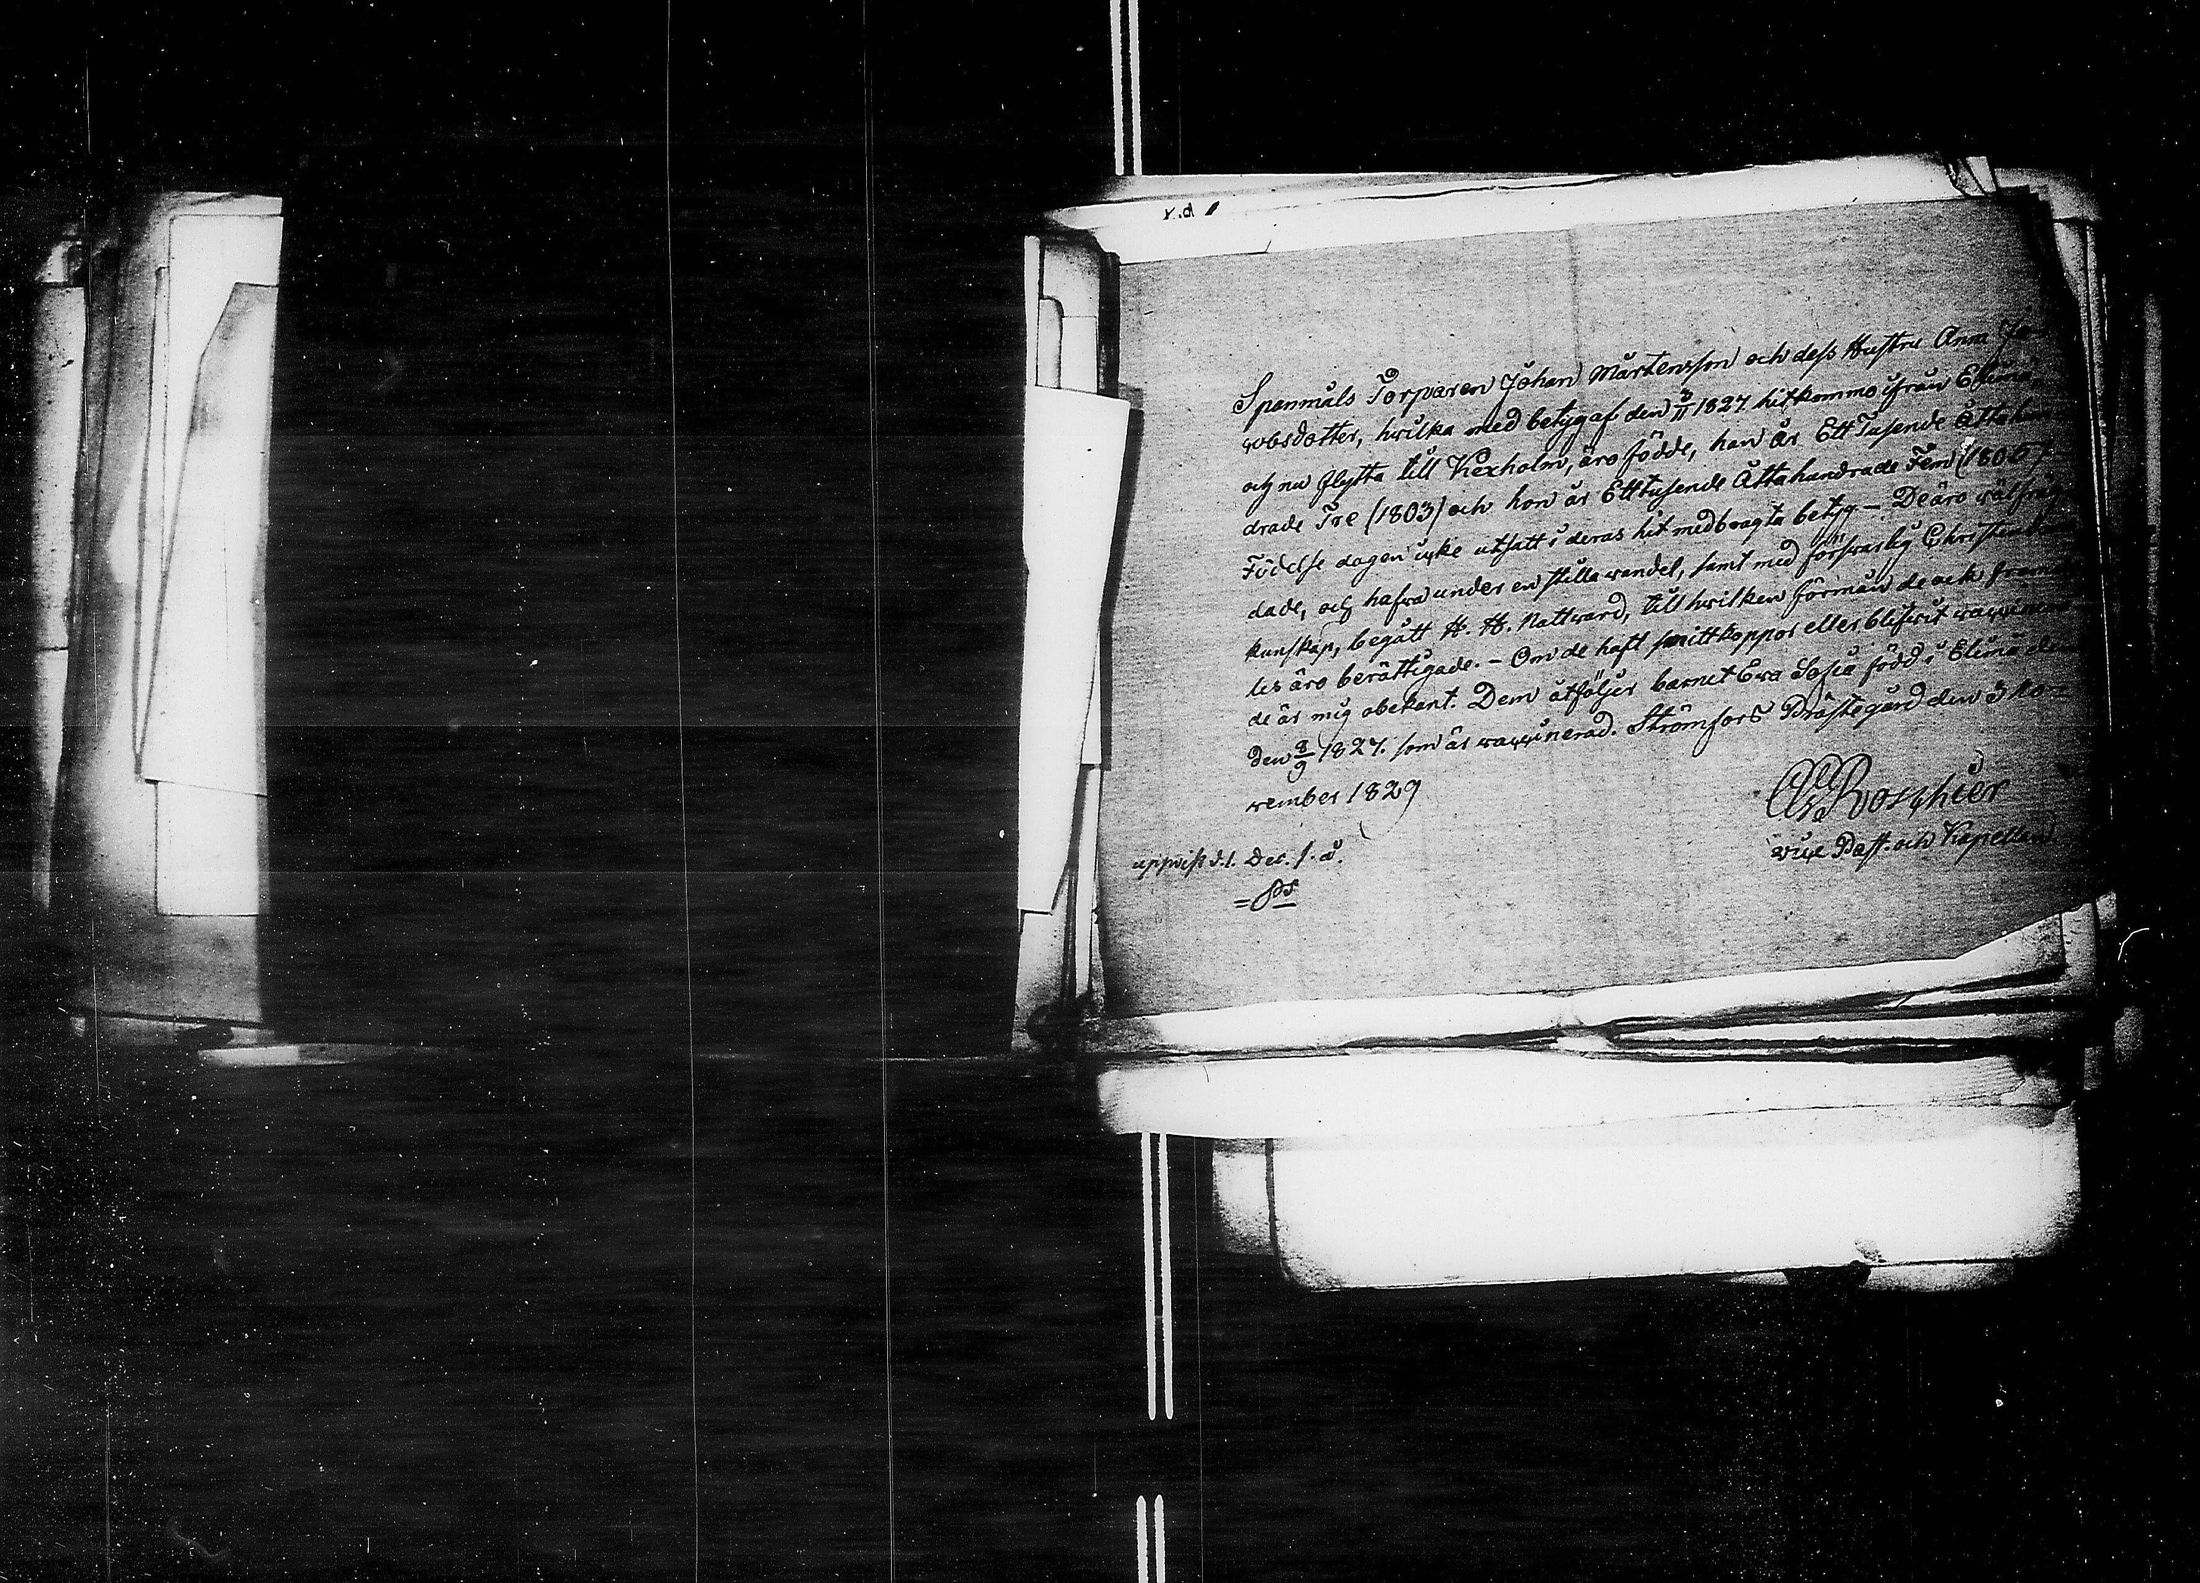 Spenmåls Torparen Johan Mårtensson och dess Hustru Anna Ja-
cobsdotter, hwilka med betyg af den 3/11 1827 hitkommo ifrån Elimä,
och nu flytta till Kexholm, äro födde, han år Ett Tusende Åttahun-
drade Tre (1803) och hon år Ettusende Åttahundrade Fem (1805)
Födelse dagen icke utsatt i deras hit medbragta betyg. – De äro wälfräg-
dade, och hafwa under en stilla wandel, samt med förswarlig Christendoms
kunskap, begått H. H. Nattward, till hwilken förmån de ock framde-
les äro berättigade. – Om de haft smittkoppor eller blifwit waccinera-
de är mig obekant. Dem åtföljer barnet Ewa Sofia född i Elimä den
den 8/9 1827. som är waccinerad. Strömfors Prästegård den 3 No-
wember 1829
Boschier
vice Past. och Kapellan
uppvist d. 1. Dec. s. å.